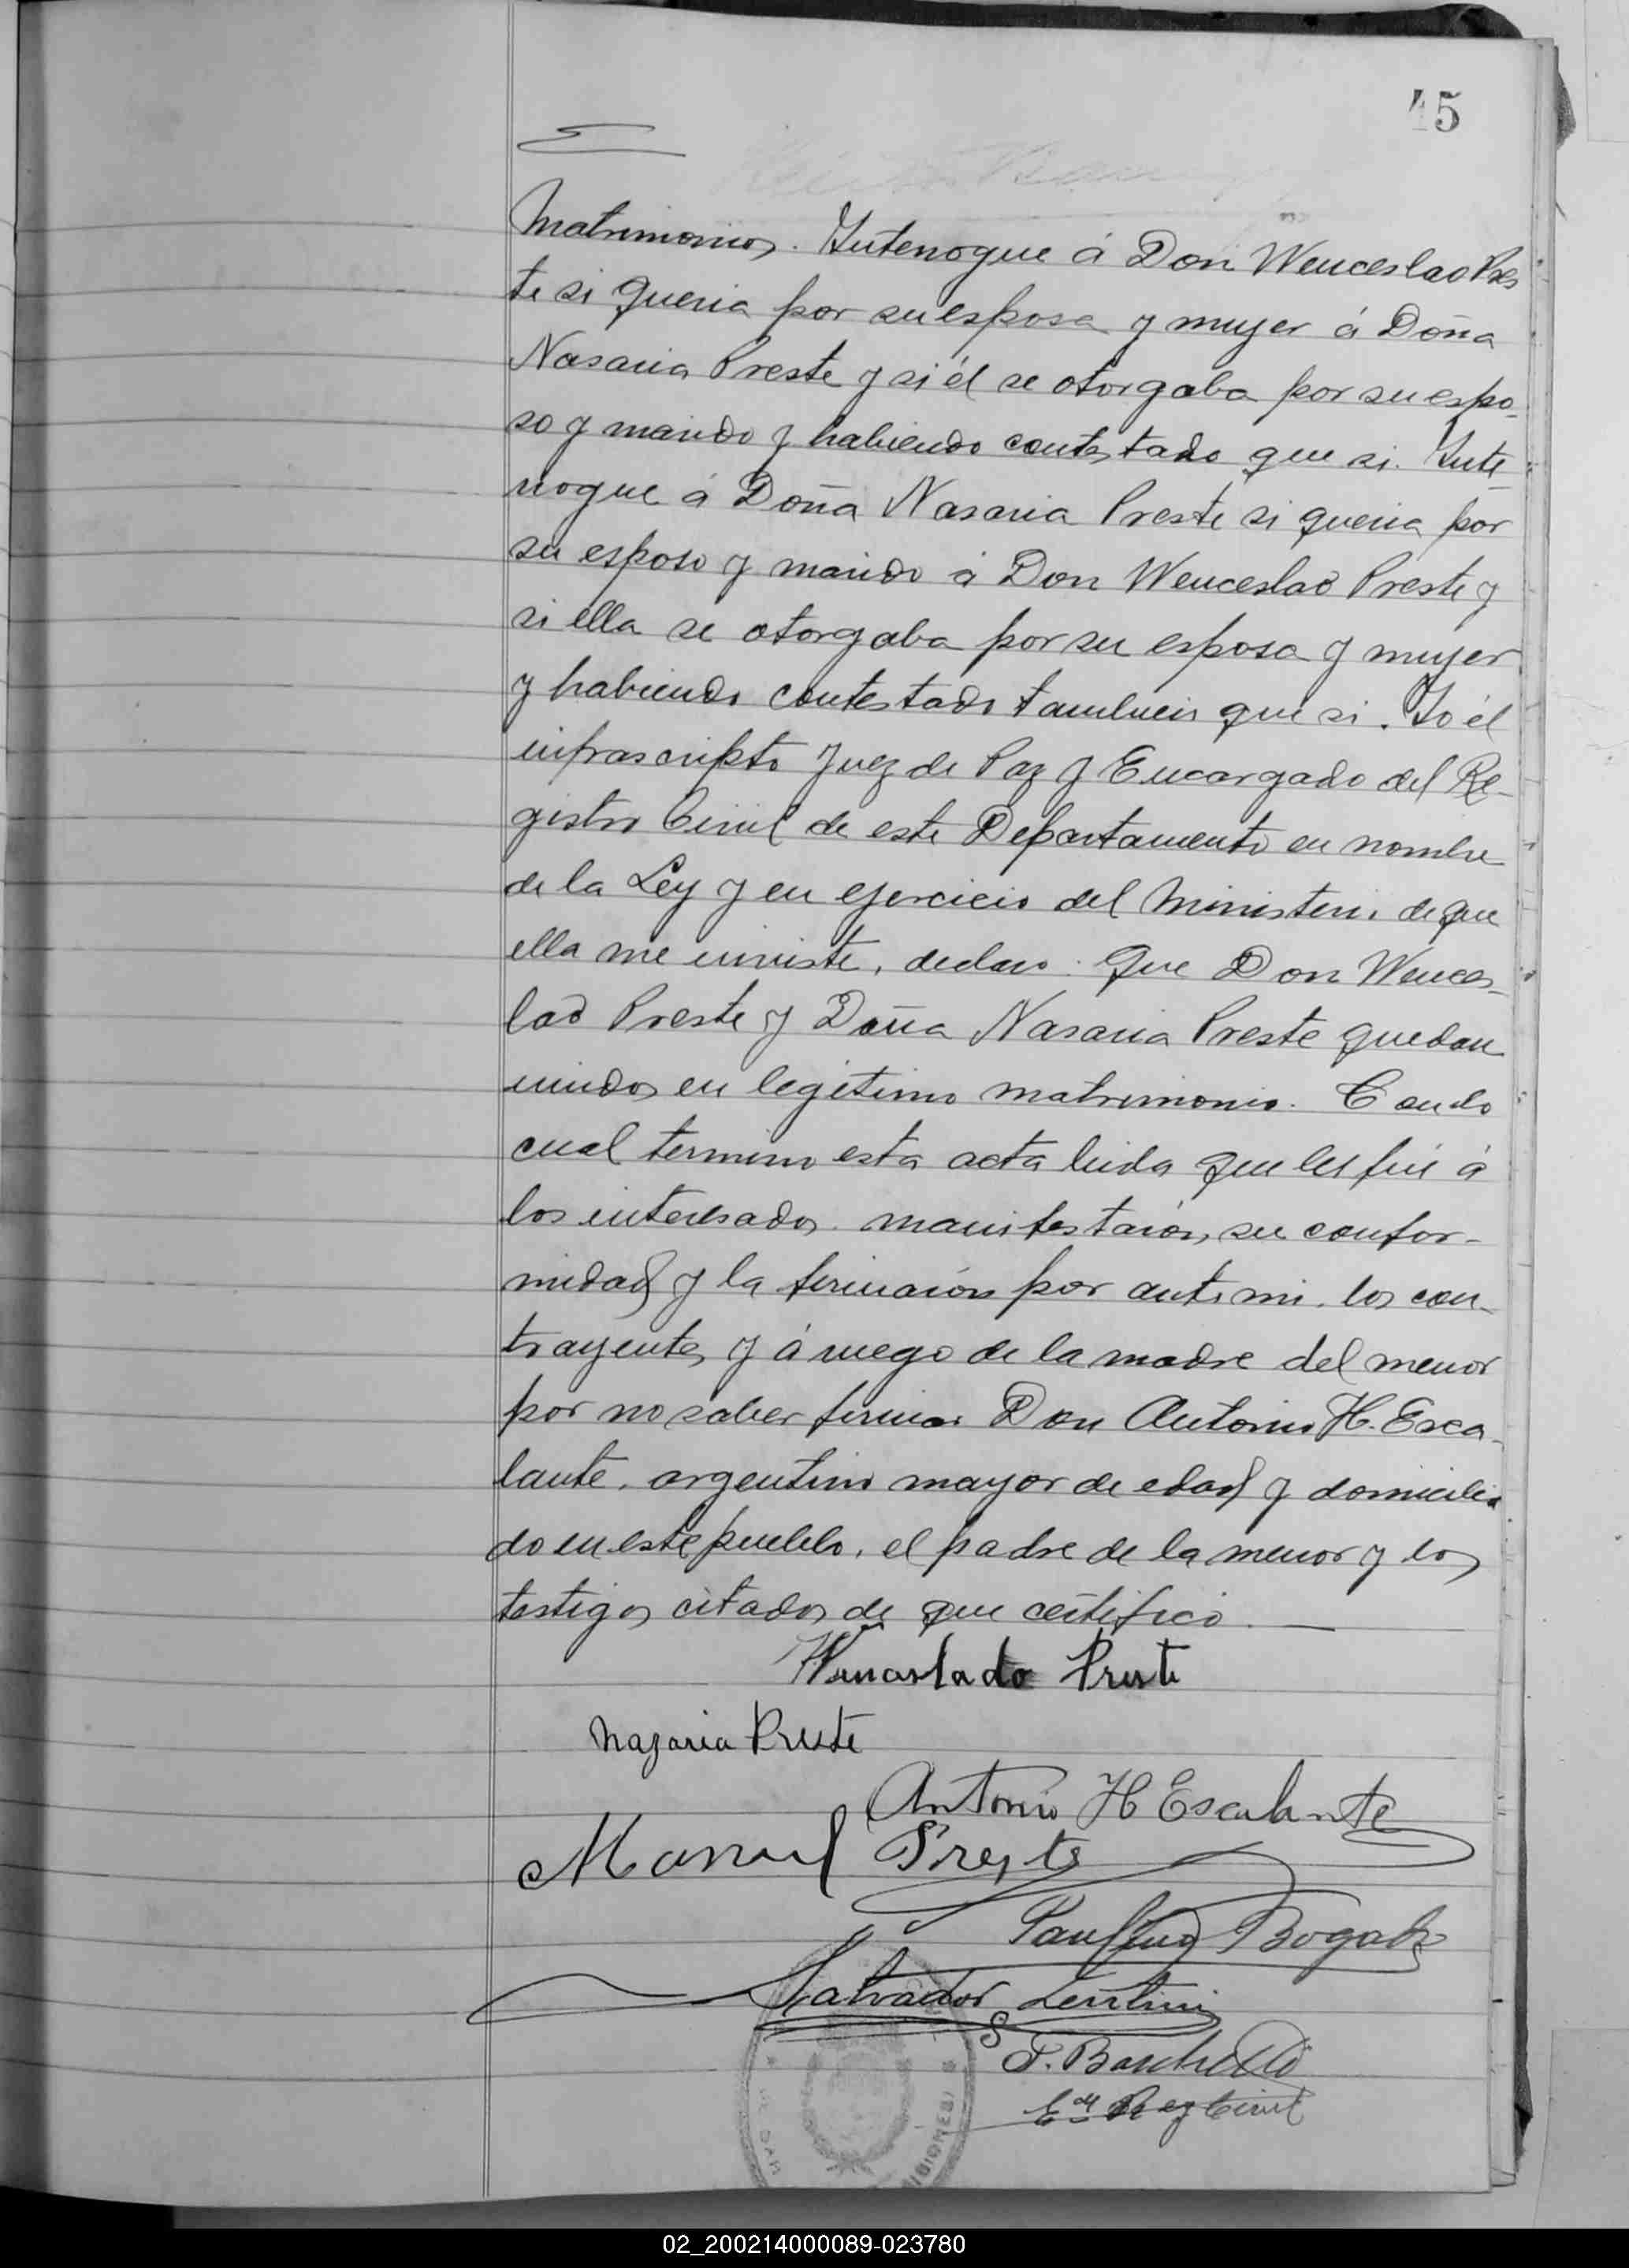 45
Matrimonios. Interrogue á Don Wenceslao Pres
te si queria por su esposa y mujer á Doña
Nasaria Preste y si él se otorgaba por su espo-
so y marido y habiendo contestado que si. Inte-
rrogue á Doña Nasaria Preste si queria por
su esposo y marido á Don Wenceslao Preste y
si ella se otorgaba por su esposa y mujer
y habiendo contestado tambien que si. Yo él
infrascripto Juez de Paz y Encargado del Re-
gistro Civil de este Departamento en nombre
de la Ley y en ejercicio del Ministerio de que
ella me inviste, declaro: Que Don Wences-
lao Preste y Doña Nasaria Preste quedan
unidos en legitimo matrimonio. Con lo
cual termino esta acta leida que les fué á
los interesados manifestaron su confor-
midad y la firmaron por ante mi, los con-
trayentes y á ruego de la madre del menor
por no saber firmar Don Antonio H. Esca-
lante, argentino mayor de edad y domicilia
do en este pueblo, el padre de la menor y los
testigos citados de que certifico.
Wencaslado Preste
Nazaria Preste
Antonio H Escalante
Manuel Preste
Salvador Lentini
Reg Civil
MISIONES
02_200214000089-023780